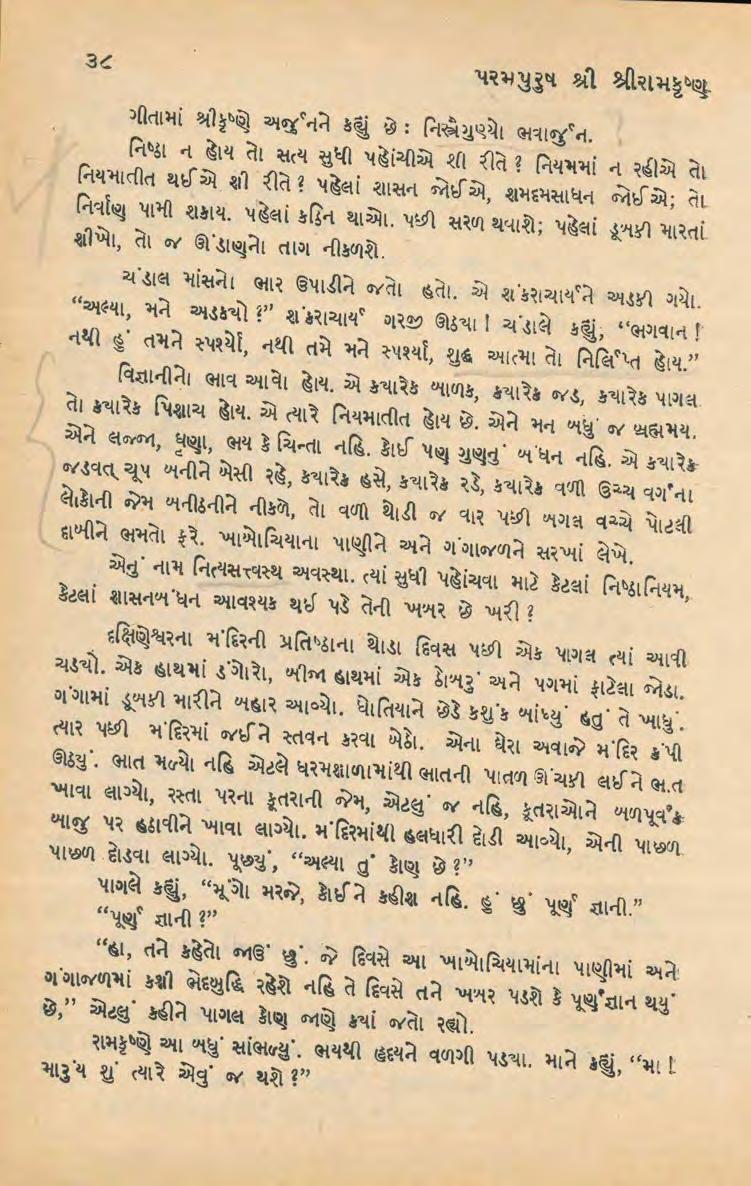 ૩૮
પરમપુરુષ શ્રી શ્રીરામકૃષ્ણ
ગીતામાં શ્રીકૃષ્ણે અર્જુનને કહ્યું છે : નિસ્ત્રૈગુણ્યો ભવાર્જુન.
નિષ્ઠા ન હોય તો સત્ય સુધી પહોંચીએ શી રીતે ? નિયમમાં ન રહીએ તો
નિયમાતીત થઈ એ શી રીતે ? પહેલાં શાસન જોઈએ, શમદમસાધન જોઈએ; તો
નિર્વાણ પામી શકાય. પહેલાં કઠિન થાઓ. પછી સરળ થવાશે; પહેલાં ડૂબકી મારતાં
શીખો, તો જ ઊંડાણનો તાગ નીકળશે.
ચંડાલ માંસનો ભાર ઉપાડીને જતો હતો. એ શંકરાચાર્યને અડકી ગયો.
“અલ્યા, મને અડકયો ?” શંકરાચાર્ય ગરજી ઊઠયા ! ચંડાલે કહ્યું, “ભગવાન !
નથી હું તમને સ્પર્શ્યો, નથી તમે મને સ્પર્શ્યા, શુદ્ધ આત્મા તો નિર્લિપ્ત હોય.”
વિજ્ઞાનીનો ભાવ આવો હોય. એ કયારેક બાળક, કયારેક જડ, કયારેક પાગલ
તો કયારેક પિશાચ હોય. એ ત્યારે નિયમાતીત હોય છે. એને મન બધું જ બ્રહ્મમય.
એને લજ્જા, ઘૃણા, ભય કે ચિન્તા નહિ. કોઈ પણ ગુણનું બંધન નહિ. એ કયારેક
જડવત્ ચૂપ બનીને બેસી રહે, કયારેક હસે, કયારેક રડે, કયારેક વળી ઉચ્ચ વર્ગના
લોકોની જેમ બનીઠનીને નીકળે, તો વળી થોડી જ વાર પછી બગલ વચ્ચે પોટલી
દાબીને ભમતો ફરે. ખાબોચિયાના પાણીને અને ગંગાજળને સરખાં લેખે.
એનું નામ નિત્યસત્ત્વસ્થ અવસ્થા. ત્યાં સુધી પહોંચવા માટે કેટલાં નિષ્ઠાનિયમ,
કેટલાં શાસનબંધન આવશ્યક થઈ પડે તેની ખબર છે ખરી ?
દક્ષિણેશ્વરના મંદિરની પ્રતિષ્ઠાના થોડા દિવસ પછી એક પાગલ ત્યાં આવી
ચડયો. એક હાથમાં ડંગોરો, બીજા હાથમાં એક ઠોબરું અને પગમાં ફાટેલા જોડા.
ગંગામાં ડૂબકી મારીને બહાર આવ્યો. ધોતિયાને છેડે કશુંક બાંધ્યું હતું તે ખાધું.
ત્યાર પછી મંદિરમાં જઈને સ્તવન કરવા બેઠો. એના ઘેરા અવાજે મંદિર કંપી
ઊઠયું. ભાત મળ્યો નહિ એટલે ધરમશાળામાંથી ભાતની પાતળ ઊંચકી લઈને ભાત
ખાવા લાગ્યો, રસ્તા પરના કૂતરાની જેમ, એટલું જ નહિ, કૂતરાઓને બળપૂર્વક
બાજુ પર હઠાવીને ખાવા લાગ્યો. મંદિરમાંથી હલધારી દોડી આવ્યો, એની પાછળ
પાછળ દોડવા લાગ્યો. પૂછયું, “અલ્યા તું કોણ છે ?”
પાગલે કહ્યું, “મૂંગો મરજે, કોઈને કહીશ નહિ. હું છું પૂર્ણ જ્ઞાની.”
“પૂર્ણ જ્ઞાની ?”
“હા, તને કહેતો જાઉં છું. જે દિવસે આ ખાબોચિયામાંના પાણીમાં અને
ગંગાજળમાં કશી ભેદબુદ્ધિ રહેશે નહિ તે દિવસે તને ખબર પડશે કે પૂર્ણજ્ઞાન થયું
છે,” એટલું કહીને પાગલ કોણ જાણે કયાં જતો રહ્યો.
રામકૃષ્ણે આ બધું સાંભળ્યું. ભયથી હૃદયને વળગી પડયા. માને કહ્યું, “મા !
મારુંય શું ત્યારે એવું જ થશે ?”